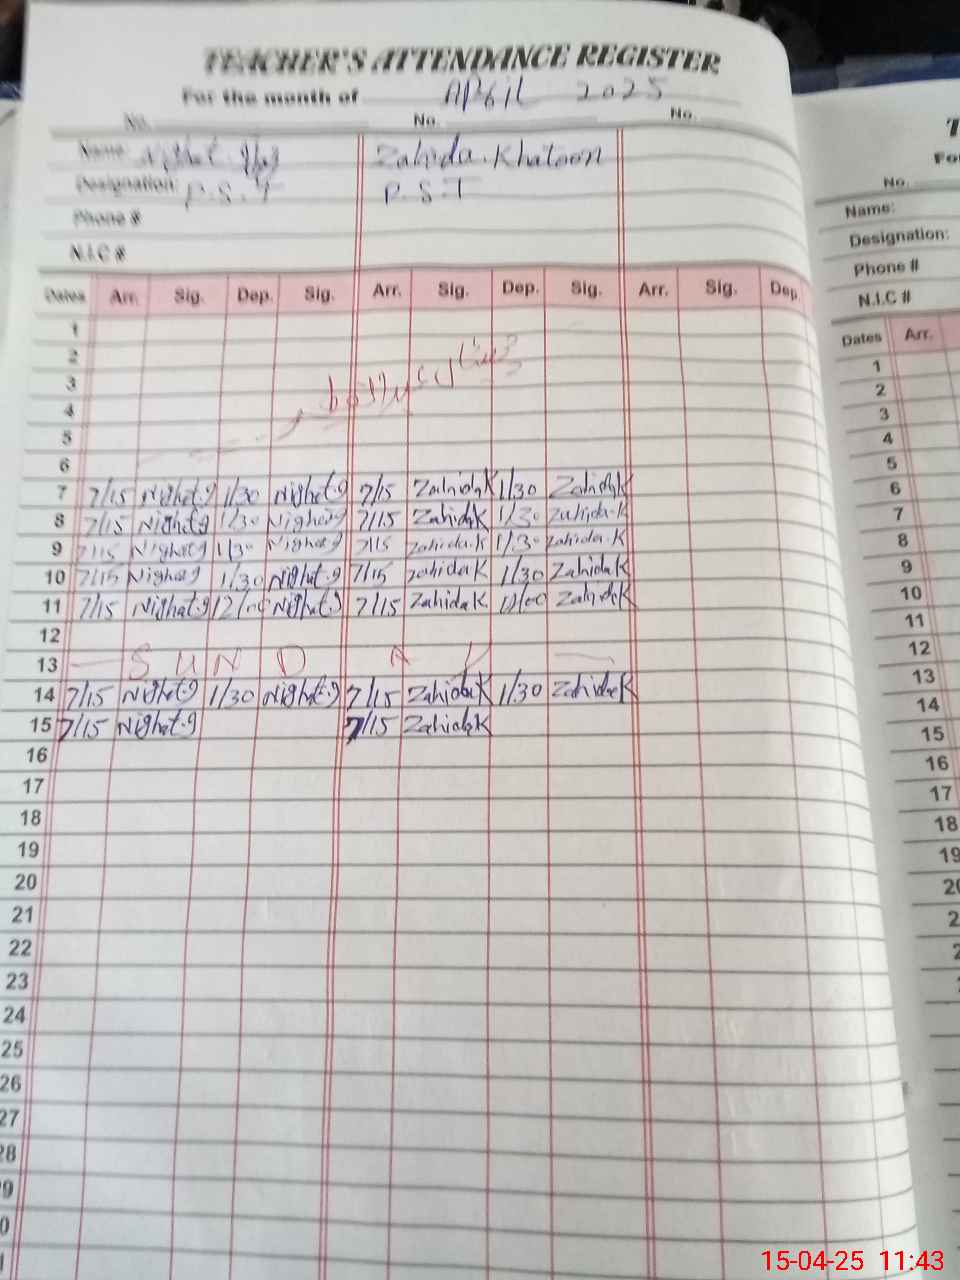 TEACHER'S ATTENDANCE REGISTER
For the month of April 2025
No. No. No.
Name: Nighat Zahida.Khatoon
Designation: P.S.T P.S.T
Phone #
N.I.C #
Dates Arr. Sig. Dep. Sig. Arr. Sig. Dep. Sig. Arr. Sig. Dep.
1
2
3
4
5
6
7 7/15 Nighat.g 1/30 Nighat.g 7/15 Zahida.K 1/30 Zahida.K
8 7/15 Nighat.g 1/30 Nighat.g 7/15 Zahida.K 1/30 Zahida.K
9 7/15 Nighat.g 1/30 Nighat.g 7/15 Zahida.K 1/30 Zahida.K
10 7/15 Nighat.g 1/30 Nighat.g 7/15 Zahida K 1/30 Zahida K
11 7/15 Nighat.g 12/00 Nighat.g 7/15 Zahida K 12/00 Zahida K
12
13 — S U N D A Y —
14 7/15 Nighat.g 1/30 Nighat.g 7/15 Zahida K 1/30 Zahida K
15 7/15 Nighat.g 7/15 Zahida K
16
17
18
19
20
21
22
23
24
25
26
27
28
9
0
No.
Name:
Designation:
Phone #
N.I.C #
Dates Arr.
1
2
3
4
5
6
7
8
9
10
11
12
13
14
15
16
17
18
19
15-04-25 11:43